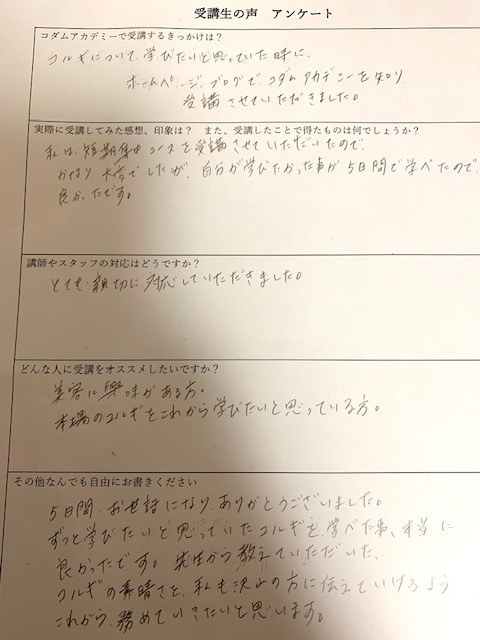 受講生の声　アンケート
コダムアカデミーで受講するきっかけは？
コルギについて、学びたいと思っていた時に、
ホームページ、ブログで、コダムアカデミーを知り、
受講させていただきました。
実際に受講してみた感想、印象は？　また、受講したことで得たものは何でしょうか？
私は、短期集中コースを受講させていただいたので、
かなり大変でしたが、自分が学びたかった事が5日間で学べたので、
良かったです。
講師やスタッフの対応はどうですか？
とても親切に対応していただきました。
どんな人に受講をオススメしたいですか？
美容に興味がある方。
本場のコルギをこれから学びたいと思っている方。
その他なんでも自由にお書きください
5日間、お世話になりありがとうございました。
ずっと学びたいと思っていたコルギを、学べた事、本当に
良かったです。先生から教えていただいた、
コルギの素晴さを、私も沢山の方に伝えていけるよう、
これから、務めていきたいと思います。